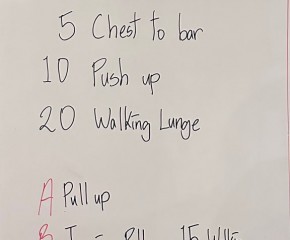 5 Chest to bar
10 Push up
20 Walking Lunge
A Pull up
B